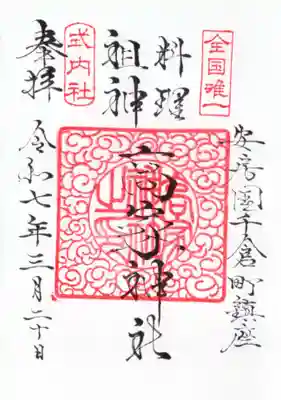 全国唯一
安房國千倉町鎮座
料理
祖神
高家神社
式内社
奉拝
令和七年三月二十日